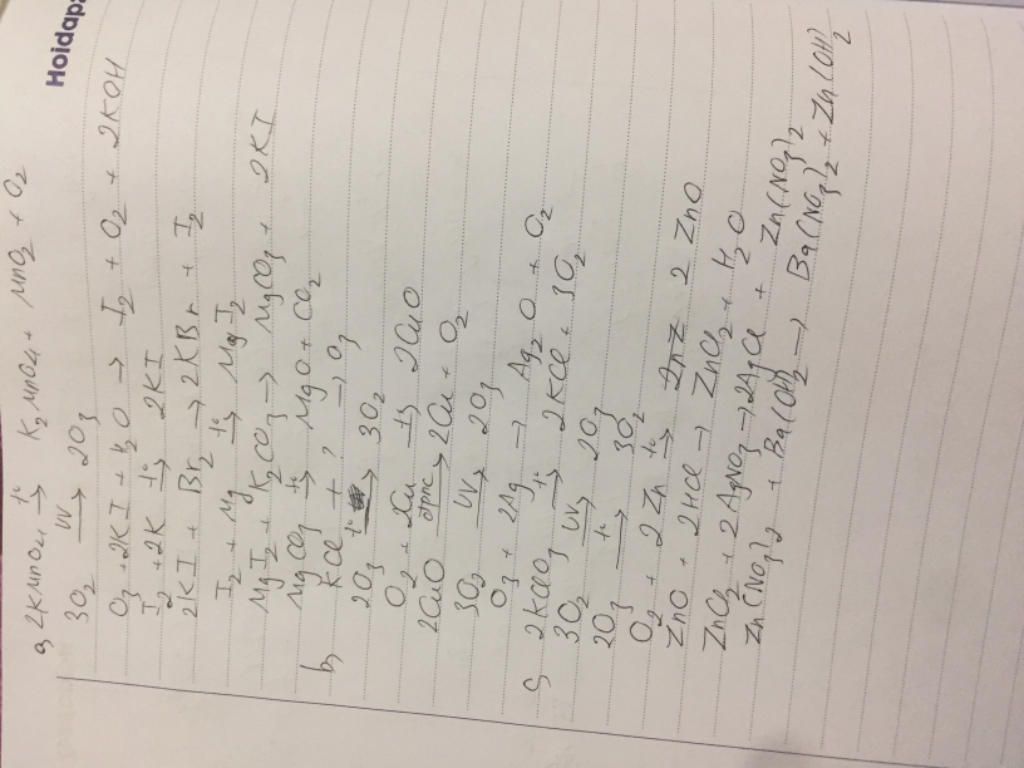 Hoidap
a, 2KMnO4 t°→ K2MnO4 + MnO2 + O2
3O2 UV→ 2O3
O3 + 2KI + H2O → I2 + O2 + 2KOH
I2 + 2K t°→ 2KI
2KI + Br2 → 2KBr + I2
I2 + Mg t°→ MgI2
MgI2 + K2CO3 → MgCO3 + 2KI
MgCO3 t°→ MgO + CO2
b, KCl + ? → O3
2O3 t°→ 3O2
O2 + 2Cu t°→ 2CuO
2CuO đpnc→ 2Cu + O2
3O2 UV→ 2O3
O3 + 2Ag → Ag2O + O2
c, 2KClO3 t°→ 2KCl + 3O2
3O2 UV→ 2O3
2O3 t°→ 3O2
O2 + 2Zn t°→ 2ZnO
ZnO + 2HCl → ZnCl2 + H2O
ZnCl2 + 2AgNO3 → 2AgCl + Zn(NO3)2
Zn(NO3)2 + Ba(OH)2 → Ba(NO3)2 + Zn(OH)2